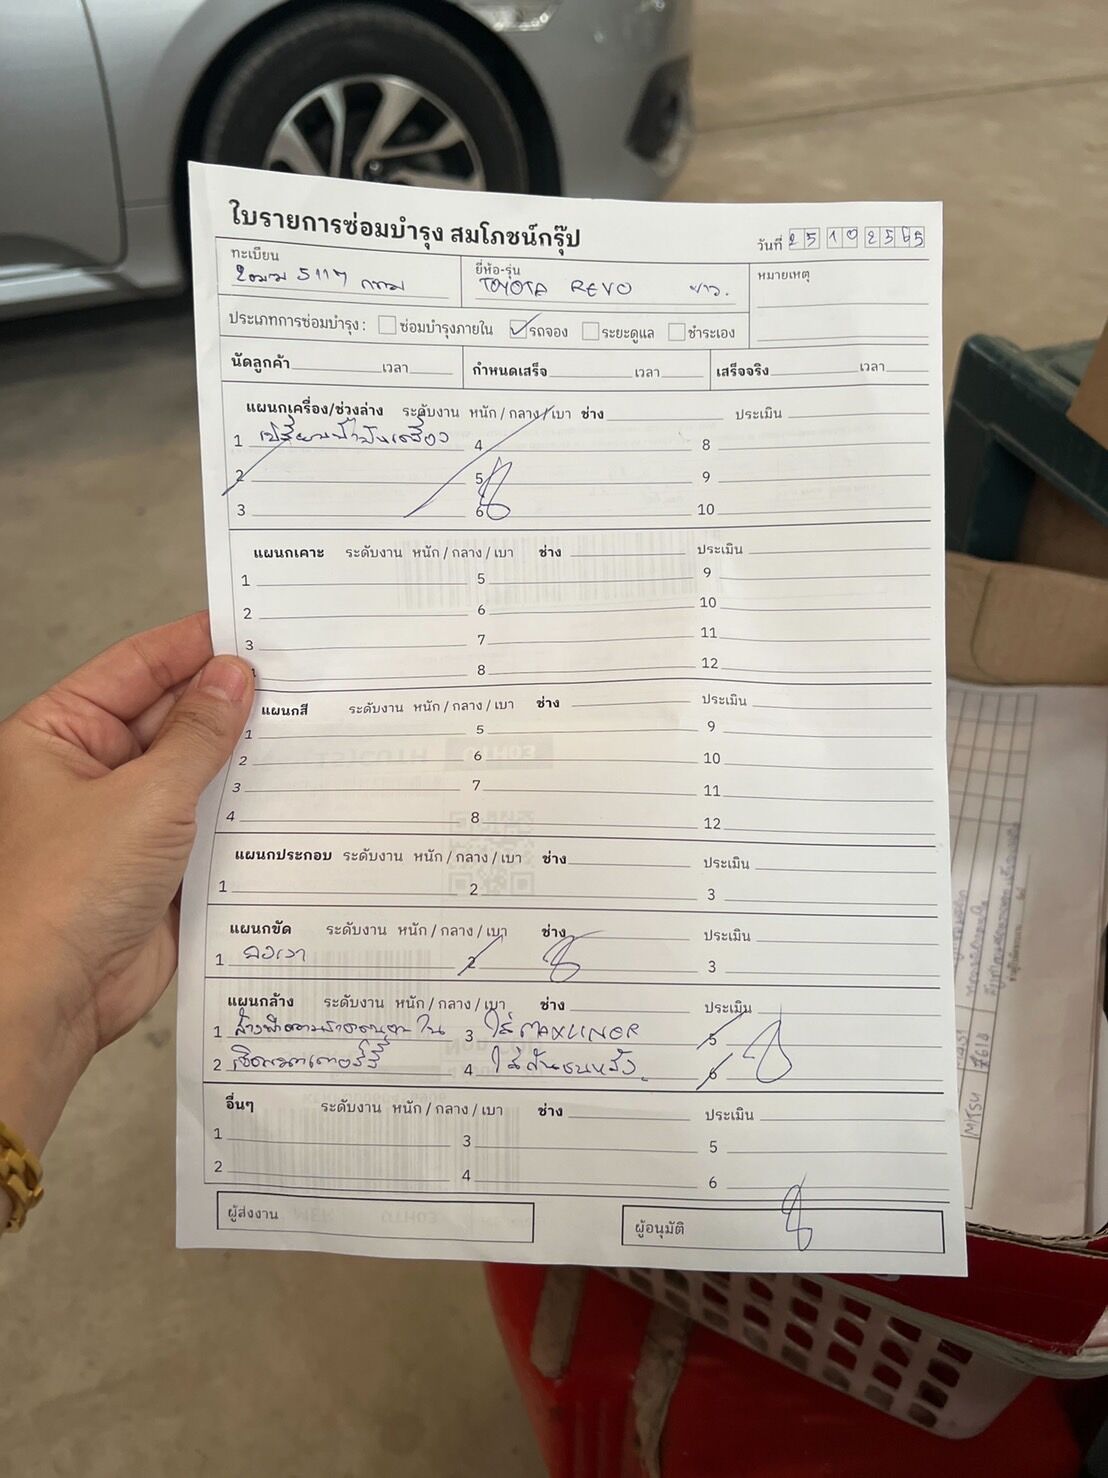 ใบรายการซ่อมบำรุง สมโภชน์กรุ๊ป
วันที่ 25 10 2565
ทะเบียน
ยี่ห้อ-รุ่น
TOYOTA REVO ขาว.
หมายเหตุ
ประเภทการซ่อมบำรุง : ซ่อมบำรุงภายใน รถจอง ระยะดูแล ชำระเอง
นัดลูกค้า เวลา กำหนดเสร็จ เวลา เสร็จจริง เวลา
แผนกเครื่อง/ช่วงล่าง ระดับงาน หนัก / กลาง / เบา ช่าง ประเมิน
1 เปลี่ยนน้ำมันเครื่อง 4 8
2 5 9
3 6 10
แผนกเคาะ ระดับงาน หนัก / กลาง / เบา ช่าง ประเมิน
1 5 9
2 6 10
3 7 11
8 12
แผนกสี ระดับงาน หนัก / กลาง / เบา ช่าง ประเมิน
1 5 9
2 6 10
3 7 11
4 8 12
แผนกประกอบ ระดับงาน หนัก / กลาง / เบา ช่าง ประเมิน
1 2 3
แผนกขัด ระดับงาน หนัก / กลาง / เบา ช่าง ประเมิน
1 ลงเงา 2 3
แผนกล้าง ระดับงาน หนัก / กลาง / เบา ช่าง ประเมิน
1 3 ใส่ MAXLINER 5
2 4 ใส่กันชนหลัง 6
อื่นๆ ระดับงาน หนัก / กลาง / เบา ช่าง ประเมิน
1 3 5
2 4 6
ผู้ส่งงาน
ผู้อนุมัติ
MITSU